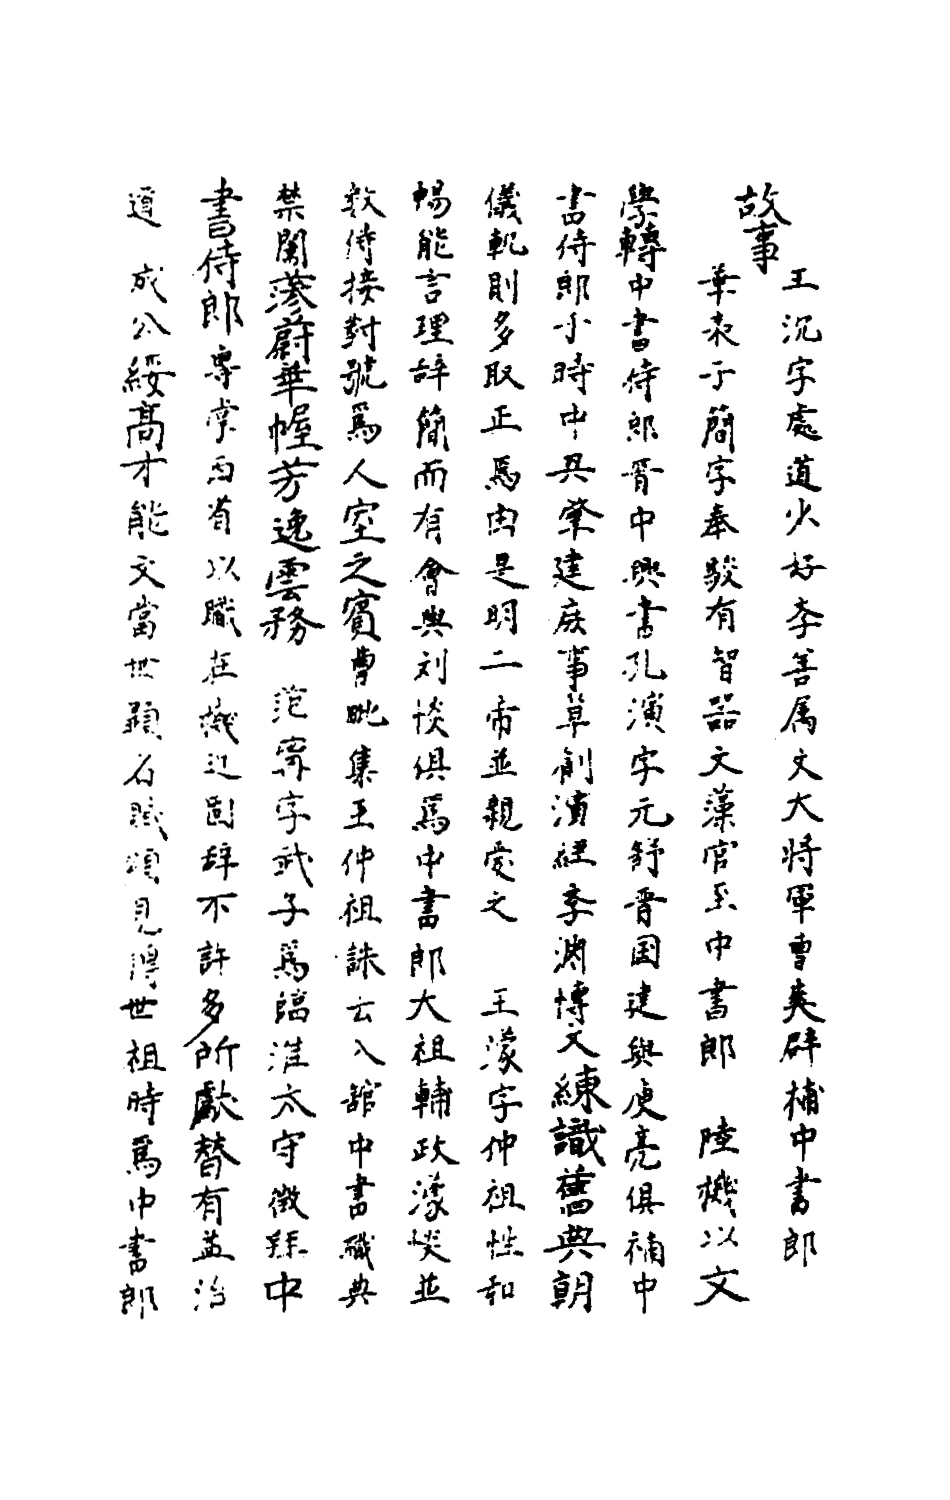 故事
王沉字處道少好李善属文大將軍曹爽辟補中書郎
華表子簡字奉駿有智器文藻官至中書郎　陸機以文
學轉中書侍郎晋中興書孔演字元舒晋国建與庾亮俱補中
書侍郎小時中興肇建庶事草創演經李渊博文練識舊典朝
儀軌則多取正焉由是明二帝並親愛之　王濛字仲祖性和
暢能言理辞簡而有會與刘惔俱爲中書郎大祖輔政濛惔並
敦侍接對號爲人室之賓曹毗集王仲祖誄云入舘中書職典
禁闈蓊蔚華幄芳逸雲務　范甯字武子爲臨淮太守徵拜中
書侍郎專掌西省以職在機近固辞不許多所獻替有益治
道　成公綏高才能文當世顯名賦頌見得世祖時爲中書郎